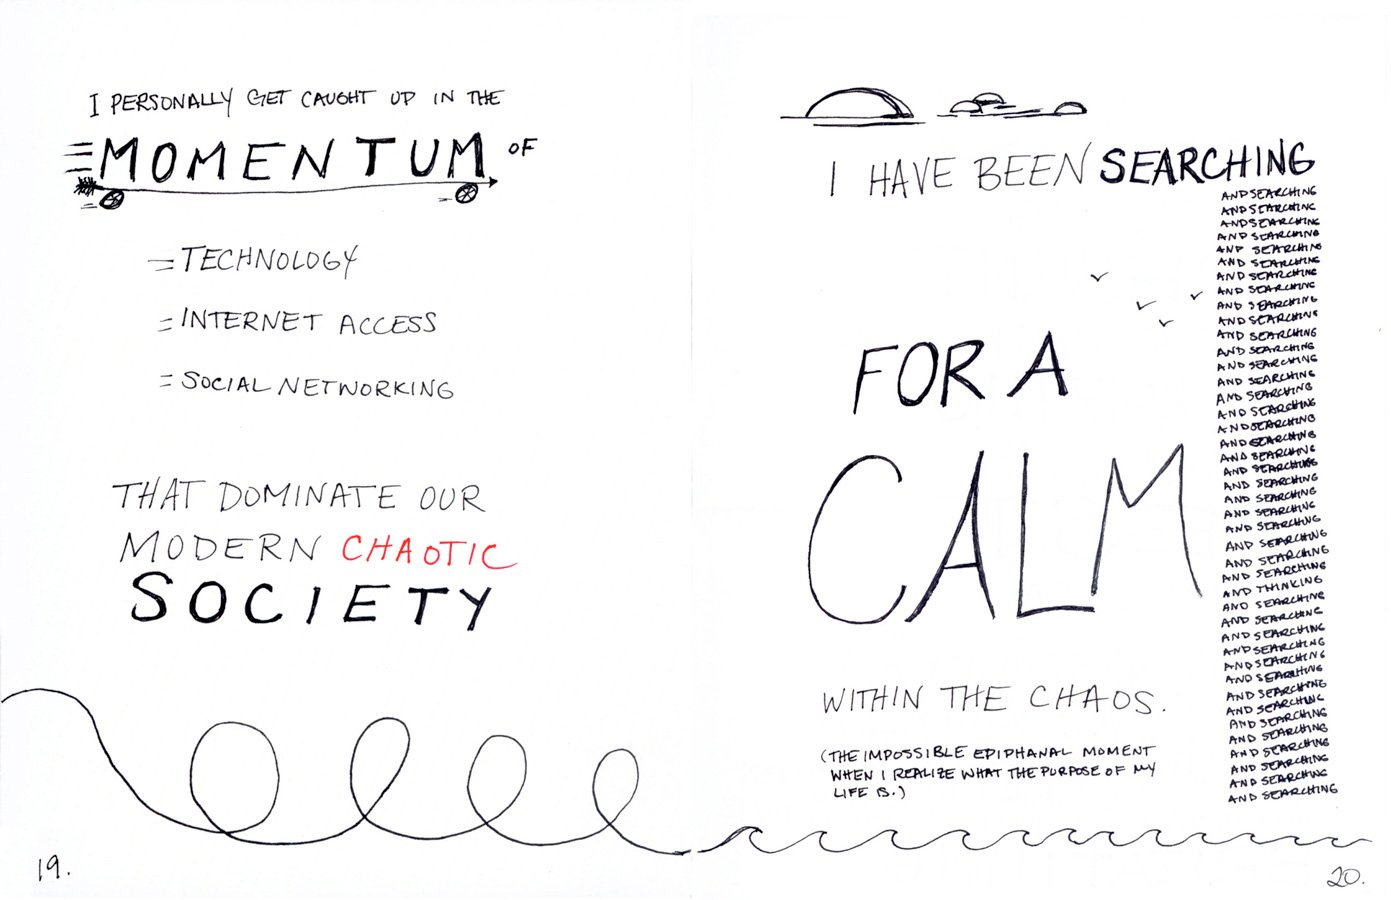 I PERSONALLY GET CAUGHT UP IN THE
MOMENTUM OF
TECHNOLOGY
INTERNET ACCESS
SOCIAL NETWORKING
THAT DOMINATE OUR
MODERN CHAOTIC
SOCIETY
19.
I HAVE BEEN SEARCHING
AND SEARCHING
AND SEARCHING
AND SEARCHING
AND SEARCHING
AND SEARCHING
AND SEARCHING
AND SEARCHING
AND SEARCHING
AND SEARCHING
AND SEARCHING
AND SEARCHING
AND SEARCHING
AND SEARCHING
AND SEARCHING
AND SEARCHING
AND SEARCHING
AND SEARCHING
AND SEARCHING
AND SEARCHING
AND SEARCHING
AND SEARCHING
AND SEARCHING
AND SEARCHING
AND SEARCHING
AND SEARCHING
AND SEARCHING
AND SEARCHING
AND THINKING
AND SEARCHING
AND SEARCHING
AND SEARCHING
AND SEARCHING
AND SEARCHING
AND SEARCHING
AND SEARCHING
AND SEARCHING
AND SEARCHING
AND SEARCHING
AND SEARCHING
AND SEARCHING
AND SEARCHING
AND SEARCHING
FOR A
CALM
WITHIN THE CHAOS.
(THE IMPOSSIBLE EPIPHANAL MOMENT
WHEN I REALIZE WHAT THE PURPOSE OF MY
LIFE IS.)
20.